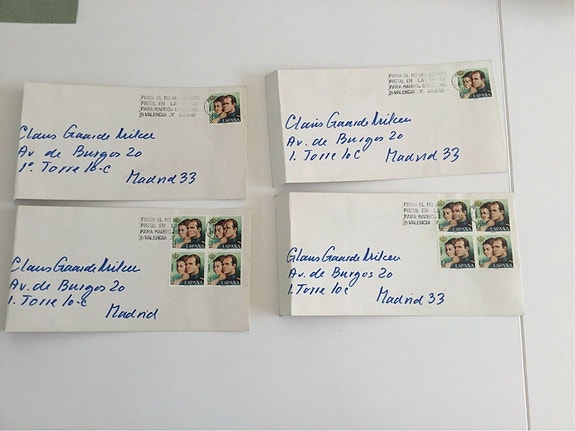 PONGA EL NO DEL DISTRITO
POSTAL EN LA
PARA MADRID
VALENCIA Y BILBAO
Claus Gaarde
Av. de Burgos 20
1º. Torre 10-C
Madrid 33
PONGA EL NO DEL DISTRITO
POSTAL EN LA
PARA MADRID BARCELONA
VALENCIA Y BILBAO
Claus Gaarde
Av. de Burgos 20
1. Torre 10C
Madrid 33
PONGA EL NO
POSTAL EN LA
PARA MADRID
VALENCIA
ESPAÑA
ESPAÑA
ESPAÑA
ESPAÑA
Claus Gaarde
Av. de Burgos 20
1. Torre 10-C
Madrid
PONGA EL NO
POSTAL EN LA
PARA MADRID
VALENCIA
ESPAÑA
ESPAÑA
ESPAÑA
ESPAÑA
Claus Gaarde
Av. de Burgos 20
1. Torre 10C
Madrid 33